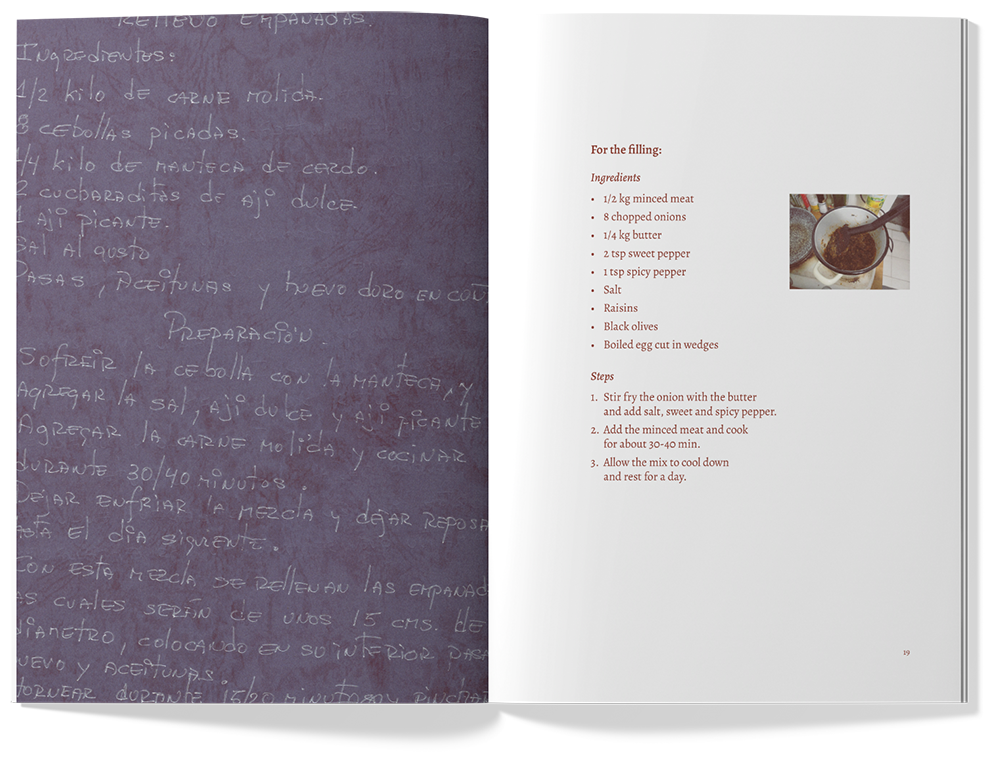 RELLENO EMPANADAS.
INGREDIENTES:
1/2 kilo de CARNE MOLIDA.
8 cebollas picadas.
1/4 kilo de MANTECA de CERDO.
2 cucharaditas de Ají dulce.
1 Ají picante.
Sal Al gusto
PASAS, ACEITUNAS y huevo duro EN
PREPARACIÓN.
Sofreir la cebolla con la MANTECA, y
AGREGAR la SAL, Ají dulce y Ají picante
AGREGAR la CARNE MOLIDA y cocinar
durante 30/40 minutos.
Dejar enfriar la mezcla y dejar
el día siguiente.
CON ESTA MEZCLA SE RELLENAN LAS
cuales serán de unos 15 cms. de
diametro, colocando en su interior
y ACEITUNAS.
durante 15/20 minutos
For the filling:
Ingredients
• 1/2 kg minced meat
• 8 chopped onions
• 1/4 kg butter
• 2 tsp sweet pepper
• 1 tsp spicy pepper
• Salt
• Raisins
• Black olives
• Boiled egg cut in wedges
Steps
1. Stir fry the onion with the butter
and add salt, sweet and spicy pepper.
2. Add the minced meat and cook
for about 30-40 min.
3. Allow the mix to cool down
and rest for a day.
19